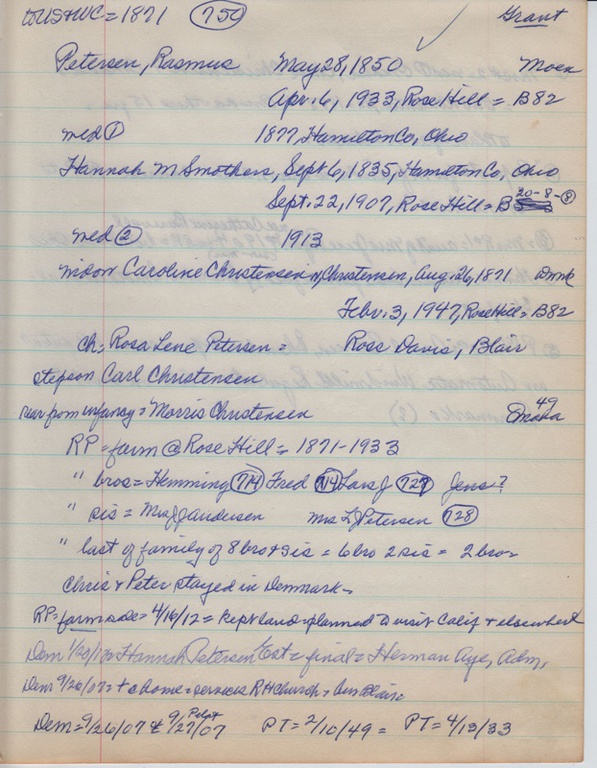 to US & WC = 1871 (750) Grant
Petersen, Rasmus May 28, 1850 Moen
Apr. 6, 1933, Rose Hill = B82
med ① 1877, Hamilton Co, Ohio
Hannah M Smothers, Sept 6, 1835, Hamilton Co, Ohio
Sept. 22, 1907, Rose Hill = B 20-8-⑧
med ② 1913
widow Caroline Christensen Christensen, Aug. 26, 1871 Dnmk
Febr. 3, 1947, Rose Hill = B82
ch = Rosa Lene Petersen = Rose Davis, Blair
stepson Carl Christensen
rear from infancy = Morris Christensen 49 Omaha
RP = farm @ Rose Hill = 1871-1933
" bros = Hemming (774) Fred Lars J (727) Jens?
" sis = Mrs J Jandersen Mrs L Petersen (728)
" last of family of 8 bro & sis = 6 bro 2 sis = 2 bro =
Chris & Peter stayed in Denmark -
RP = farm sale = 4/16/12 = kept land = planned to visit Calif & elsewhere
Dem Hannah Petersen Est = final = Herman Aye, Adm.
Dem 9/26/07 = + @ home = services RH Church = bur Blair
Dem = 9/26/07 & 9/27/07 PT = 2/10/49 = PT = 4/13/33